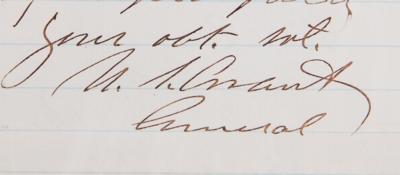 your obt. svt.
U. S. Grant
General